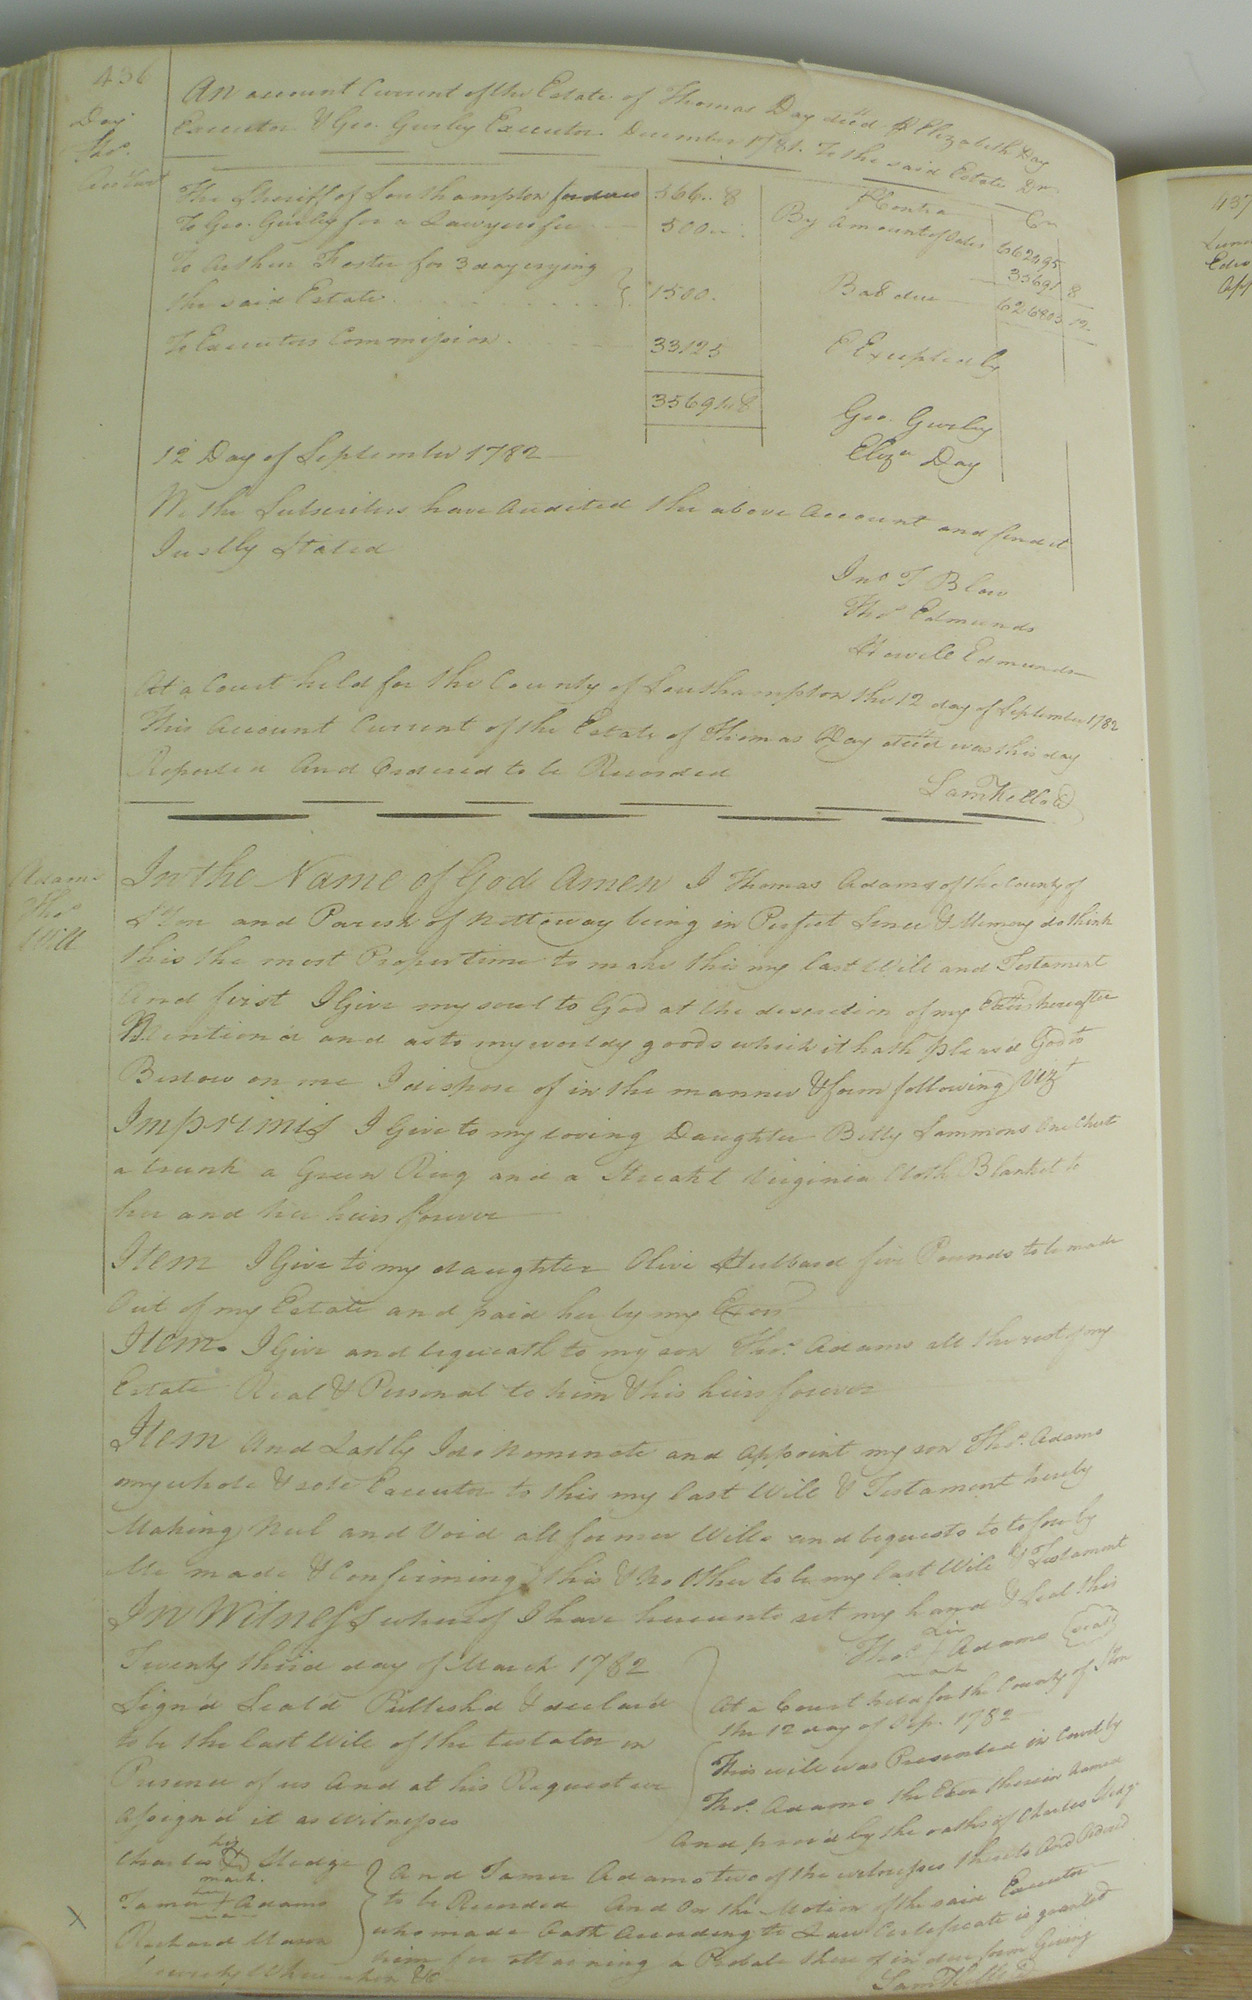 436
Day
Tho.s
Acct Curt
An account Current of the Estate of Thomas Day decd P Elizabeth Day
Executor & Geo. Gurley Executor. December 1781. To the said Estate Dr
The Sheriff of Southampton for dues 566.. 8
To Geo. Gurley for a Lawyers fee 500..
To Arthur Foster for 3 day crying
the said Estate 1500.
To Executors Commission. 33125
35691..8
P Contra Cr
By Amount of Sales 662495
35691 8
Bal due 626803. 12.
E Excepted by
Geo. Gurley
Eliza Day
12 Day of September 1782
We the Subscribers have Audited the above Account and find it
Justly Stated
Jno T Blow
Thos Edmunds
Howell Edmunds
At a Court held for the County of Southampton the 12 day of September 1782
This Account Current of the Estate of Thomas Day decd was this day
Reported And Ordered to be Recorded
Adams
Thos
Will
In the Name of God Amen I Thomas Adams of the County of
S.ton and Parish of Nottoway being in Perfect Sence & Memory do think
this the most Proper time to make this my last Will and Testament
And first I Give my soul to God at the discretion of my hereafter
Mention'd and as to my worldy goods which it hath pleas'd God to
Bestow on me I dispose of in the manner & form following Vizt
Imprimis I Give to my loving Daughter Betty Sammons One Chest
a trunk a Green Rug and a Virginia Cloth Blanket to
her and her heirs forever
Item I Give to my daughter Olive Hubbard five Pounds to be made
Out of my Estate and paid her by my Exor
Item. I Give and bequeath to my son Thos. Adams all the rest of my
Estate Real & Personal to him & his heirs forever
Item And Lastly I do Nominate and Appoint my son Thos. Adams
my whole & sole Executor to this my last Will & Testament hereby
Making Nul and Void all former Wills and bequests to fore by
Me made & Confirming this & No Other to be my last Will & Testament
In Witness whereof I have hereunto set my hand & Seal this
Twenty third day of March 1782
his
Thos. + Adams (seal)
mark
Sign'd Seal'd Publish'd & declar'd
to be the last Will of the testator in
Presence of us And at his Request we
Assign'd it as Witnesses
his
Charles Sledge
mark.
her
Tamer + Adams
Richard Mason
At a Court held for the County of S.ton
the 12 day of Sep. 1782
This will was Presented in Court by
Thos. Adams the Exor therein named
And prov'd by the oaths of Charles Sledge
And Tamer Adams two of the witnesses thereto And Ordered
to be Recorded And On the Motion of the said Executor
who made Oath According to Law Certificate is granted
him for obtaining a Probate thereof in due form Giving
Security When &c